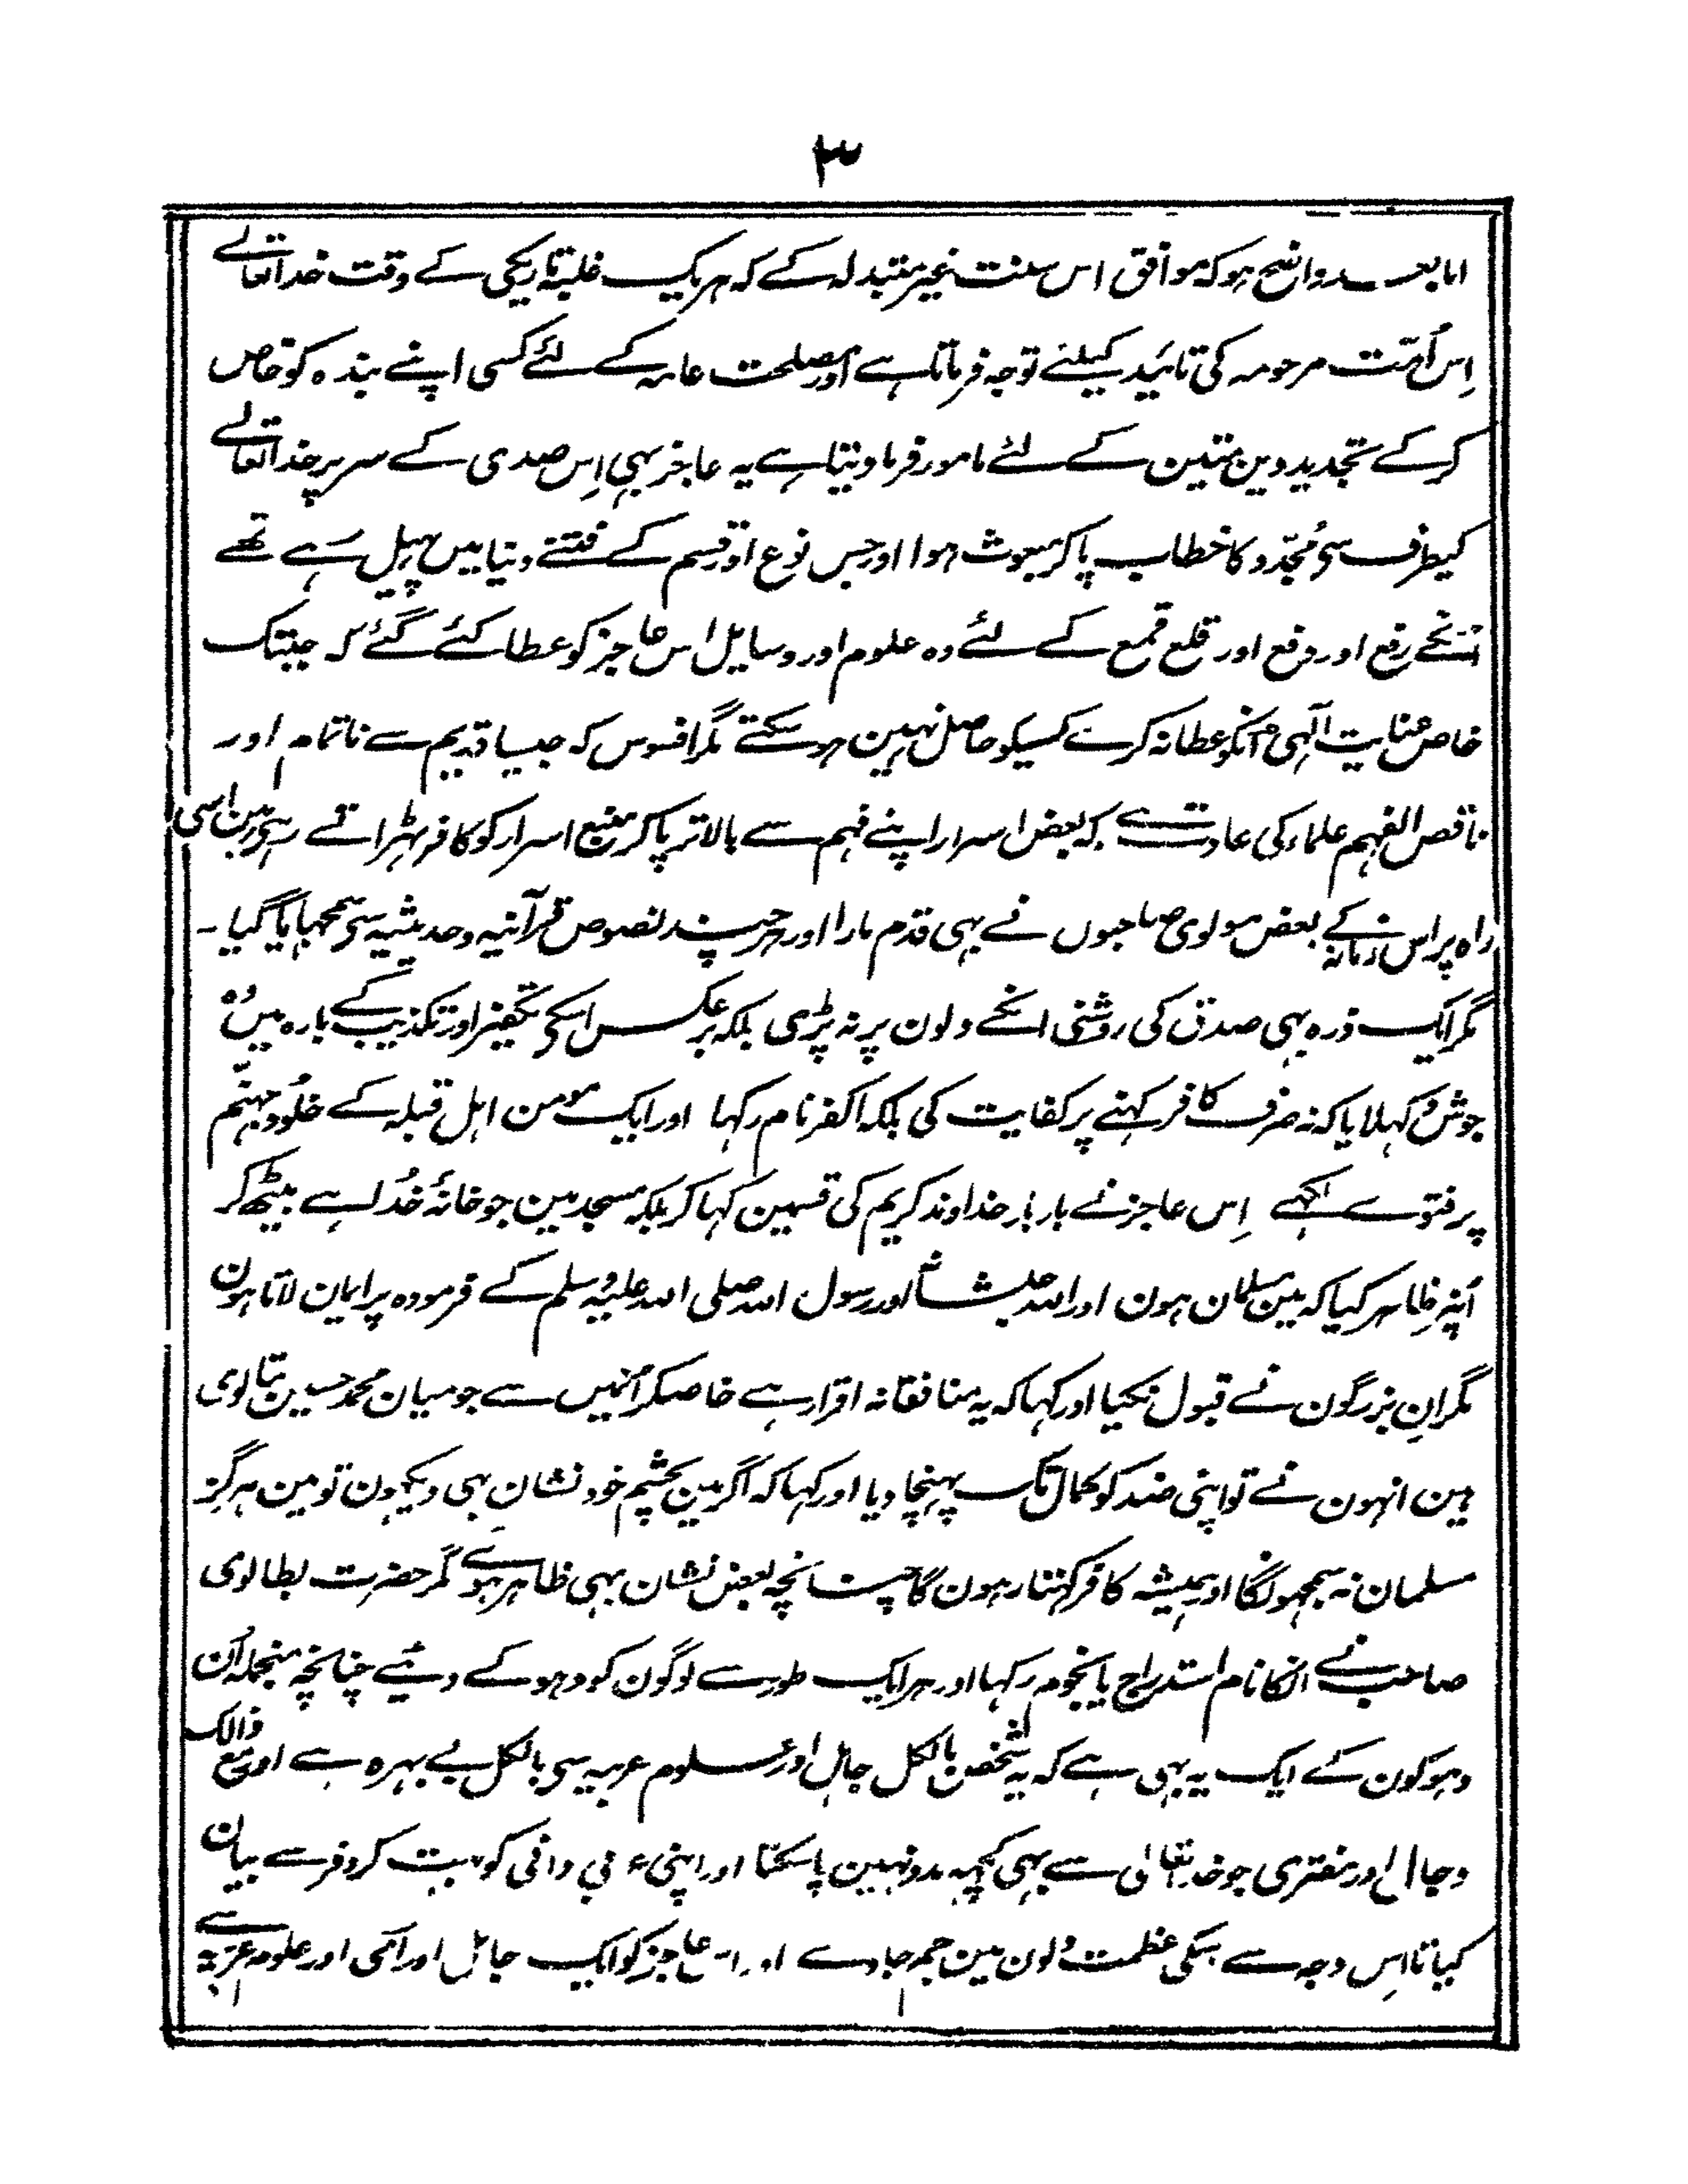 ۳
اما بعد واضح ہو کہ موافق اس سنت غیر متبدلہ کے کہ ہریک غلبہ تاریکی کے وقت خداتعالے
اِس اُمّت مرحومہ کی تائید کیلئے توجہ فرماتا ہے اور مصلحت عامہ کے لئے کسی اپنے بندہ کو خاص
کر کے تجدید دین متین کے لئے مامور فرما دیتا ہے یہ عاجز بہی اِس صدی کے سر پر خداتعالے
کیطرف سی مُجدّد کا خطاب پا کر مبعوث ہوا اور جس نوع اور قسم کے فتنے دنیا میں پہیل رہے تھے
اُنکے رفع اور دفع اور قلع قمع کے لئے وہ علوم اور وسایل اس عاجز کو عطا کئے گئے کہ جبتک
خاص عنایت آلہی اُنکو عطا نہ کرے کسیکو حاصل نہیں ہو سکتے مگر افسوس کہ جیسا قدیم سے ناتمام اور
ناقص الفہم علماء کی عادت ہے کہ بعض اسرار اپنے فہم سے بالاتر پا کر منبع اسرار کو کافر ٹہراتے رہی ہین اسی
راہ پر اس زمانہ کے بعض مولوی صاحبوں نے بہی قدم مارا اور ہرچند نصوص قرآنیہ و حدیثیہ سی سمجہایا گیا۔
مگر ایک ذرہ بہی صدق کی روشنی انکے دلون پر نہ پڑی بلکہ برعکس اسکی تکفیر اور تکذیب کے بارہ میں وُہ
جوش دکہلایا کہ نہ صرف کافر کہنے پر کفایت کی بلکہ اکفر نام رکہا اور ایک مومن اہل قبلہ کے خلُودِ جہنّم
پر فتوے لکہے اِس عاجز نے بار بار خداوند کریم کی قسمین کہا کر بلکہ مسجد مین جو خانۂ خُدا ہے بیٹھ کر
اُنپر ظاہر کیا کہ مین مسلمان ہون اور اللہ جلشانہٗ اور رسول اللہ صلی اللہ علیہ وسلم کے فرمودہ پر ایمان لاتا ہون
مگر انِ بزرگون نے قبول نکیا اور کہا کہ یہ منافقانہ اقرار ہے خاصکر اُنمیں سے جو میان محمد حسین بٹالوی
ہین انہون نے تو اپنی ضد کو کمال تک پہنچا دیا اور کہا کہ اگر مین بچشم خود نشان بہی دیکہون تو مین ہرگز
مسلمان نہ سمجہونگا اور ہمیشہ کافر کہتا رہون گا چنانچہ بعض نشان بہی ظاہر ہوئے مگر حضرت بطالوی
صاحب نے انکا نام استدراج یا نجوم رکہا اور ہر ایک طور سے لوگون کو دہوکے دئیے چنانچہ منجملہ اُن
دہوکون کے ایک یہ بہی ہے کہ یہ شخص بالکل جاہل اور علوم عربیہ سی بالکل بے بہرہ ہے اور مع ذالک
دجال اور مفتری جو خداتعالٰی سے بہی کچہہ مدد نہین پا سکتا اور اپنی عربی دانی کو بہت کروفر سے بیان
کیا تا اِس وجہ سے اسکی عظمت دلون مین جم جاوے اور اس عاجز کو ایک جاہل اور اُمّی اور علوم عربیہ سے